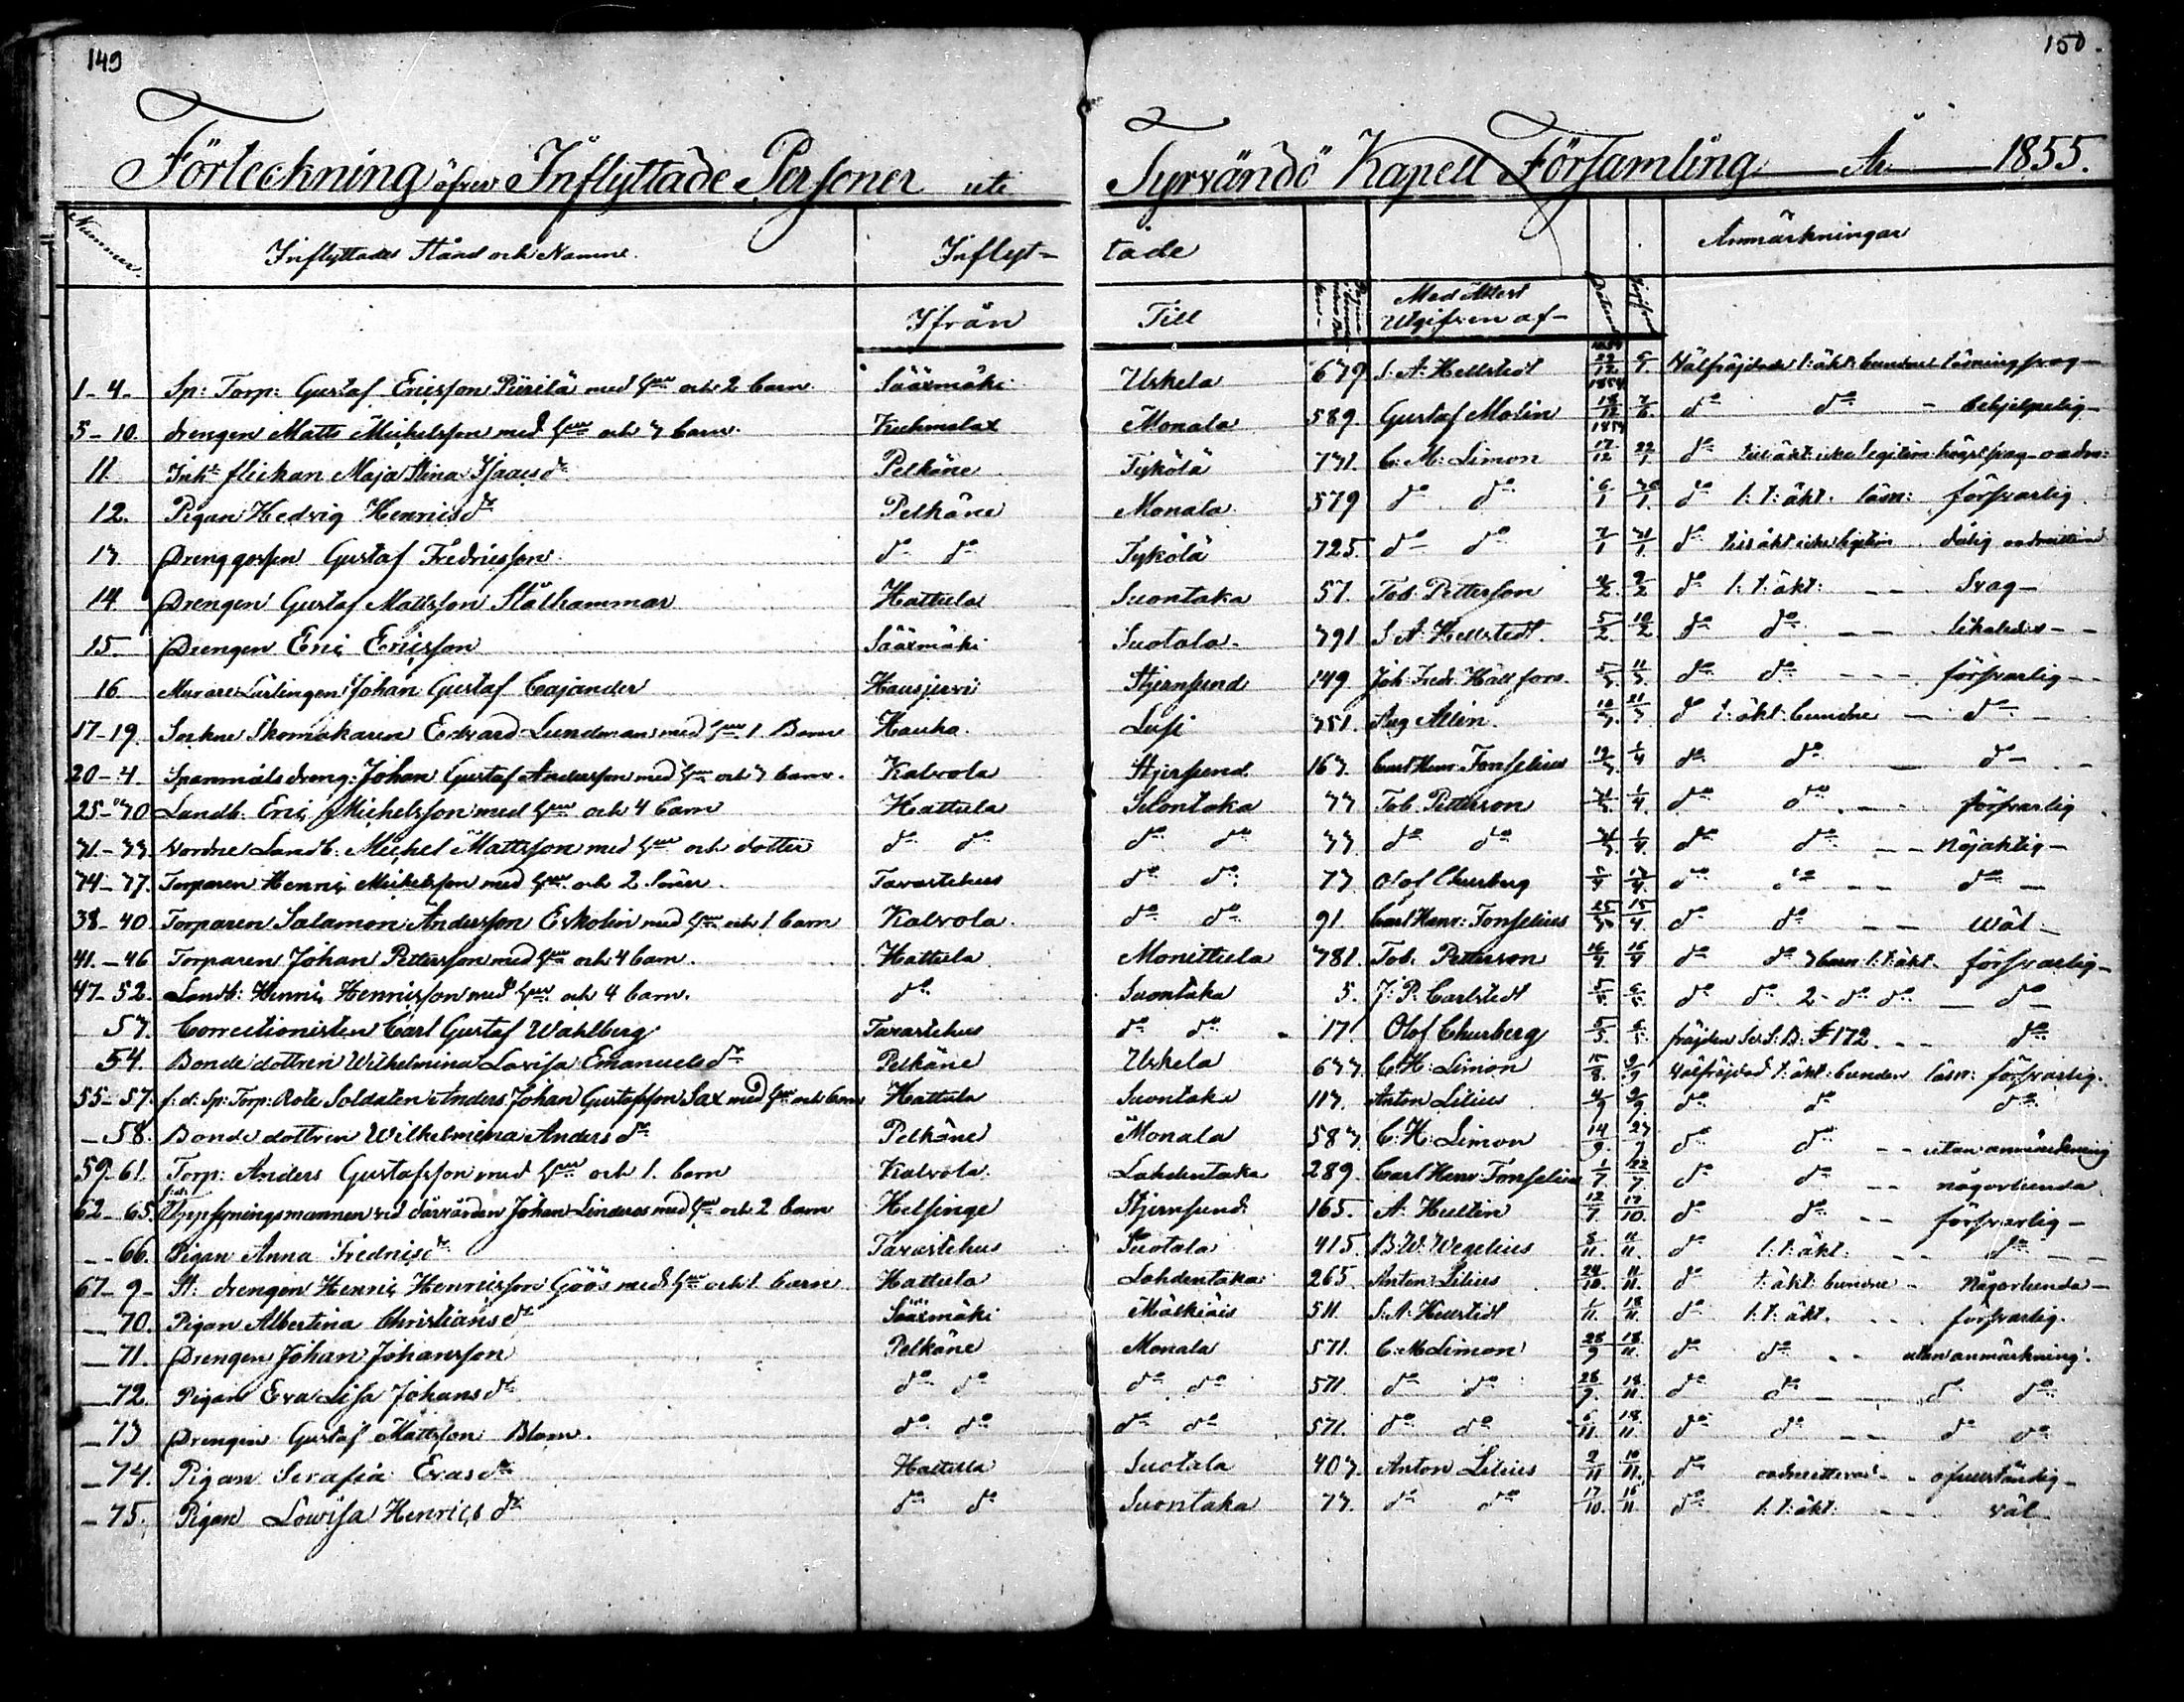 149
150.
Förteckning öfver Inflyttade Personer uti Tyrvändö Kapell Församling År 1855.
Nummer. Inflyttades Stånd och Namn. Inflyt- tade Anmärkningar
Ifrån Till Med Attest Utgifven af-
1-4- Sp: Torp: Gustaf Ericsson Piirilä med hu och 2 barn. Sääxmäki Uskela 679 S. A. Hellstedt 1854 22/12 Välfräjdade t: äkt: bundne läsning svag-
5-10. drengen Matts Michelsson med hu och 3 barn. Kuhmalax Monala 589 Gustaf Molin 1854 18/12 do do - behjelpelig-
11. Inh flickan Maja Stina Isaacs dr Pelkäne Tykölä 731. C: M: Limon 1854 17/12 22/1 do till äkt icke legitim högst svag-
12. Pigan Hedvig Henrics dr Pelkäne Monala 579 do do 6/1 do l: t: äkt. läsn: försvarlig
13 Drenggossen Gustaf Fredricsson do do Tykölä 325. do do 31/1 do till äkt icke legitim dålig
14 Drengen Gustaf Mattsson Stålhammar Hattula Suontaka 57. Tob. Petterson 4/2. 9/2 do l: t: äkt: - - Svag-
15- Drengen Eric Ericsson Sääxmäki Suotala. 391 S A. Hellstedt. 5/2. 10/2 do do - - likaledes - -
16 Murare Lärlingen Johan Gustaf Cajander Hausjervi Stjernsund 149 Joh. Fredr. Hällfors. 5/3. 11/3. do do - - - försvarlig - -
17-19. Sockne Skomakaren Edvard Lundman med hu 1 Barn Hauho. Lusi 351. Aug Allén. 10/3. 21/3 do t: äkt: bundne - do -
20-4. Spanmåls dreng: Johan Gustaf Andersson med hu och 3 barn. Kalvola Stjernsund. 163. Carl Henr Fonselius 1/4 do do - do -
25-30 Landb. Eric Michelsson med hu och 4 barn Hattula Suontaka 33 Tob. Petterson 1/4. do do - - försvarlig
31-33. Vordne Landb: Michel Mattsson med hu och dotter do do do do 33 do do 1/4. do do - - nöjaktig-
34-37. Torparen Henric Michelsson med hu och 2 Söner. Tavastehus do do 73 Olof Churberg 13/4. do do - - do -
38-40. Torparen Salamon Andersson Eskolin med hu och 1 barn Kalvola. do do 91. Carl Henr: Fonselius 25/3 15/4. do do - - Wäl-
41.-46 Torparen Johan Pettersson med hu och 4 barn. Hattula Monittula 381. Tob. Petterson 16/4. 16/4 do do 3 barn l: t: äkt. försvarlig-
47-52. Landb: Henric Henricsson med hu och 4 barn. do Suontaka 5. J. P. Carlstedt 5/5 6/5 do do 2- do do - do
53. Correctionisten Carl Gustaf Wahlberg Tavastehus do do 17. Olof Churberg 5/5. 6/5. fräjden Se S. B. 172 - - do
54. Bonde dottren Wilhelmina Lovisa Emanuels dr Pelkäne Uskela 633. C. H: Limon 15/8. 2/9 Välfräjdad t: äkt: bunden läsn: försvarlig.
55-57. f: d: Sp: Torp: Rote Soldaten Anders Johan Gustafsson Sax med hu och barn Hattula Suontaka 113. Anton Lilius 4/9 2/9 do do do
-58. Bonde dottren Wilhelmina Anders dr Pelkäne Monala 583. C: H: Limon 14/9. do do - - utan anmärkning
59-61. Torp: Anders Gustafsson med hu och 1. barn Kalvola. Lahdentaka 289. Carl Henr Fonselius 1/7 22/7 do do - - någorlunda
62-65. f: d: Uppsyningsmannen vid dårvården Johan Linderos med hu och 2 barn Helsinge Stjernsund. 165. A: Hultin 17/10. do do - - försvarlig-
-66. Pigan Anna Fredrics dr Tavastehus Suotala 415. B. W. Wegelius 8/11. 11/11. do l: t: äkt: - - do - -
67-9- St: drengen Henric Henricsson Göös med hu och 1 barn Hattula Lahdentaka 265 Anton Lilius 24/10. 11/11. do t: äkt: bundne - någorlunda-
-70. Pigan Albertina Christians dr Sääxmäki Mälkiäis 511. S. A. Hellstedt 1/11. 18/11. do l: t: äkt. - - - försvarlig.
-71. Drengen Johan Johansson Pelkäne Monala 571. C. M Limon 28/9 18/11. do do - - utan anmärkning.
-72. Pigan Eva Lisa Johans dr do do do do 571 do do 28/9. 18/11. do do - - do do
-73 Drengen Gustaf Mattsson Blom. do do do do 571. do do 6/11. 18/11. do do - - do do
-74. Pigan Serafia Evas dr Hattula Suotala 403. Anton Lilius 9/11 16/11. do oadmitterad - ofullständig-
-75. Pigan Lowisa Henrics dr do do Suontaka 73. do do 17/10. 16/11 do l: t: äkt: - - väl